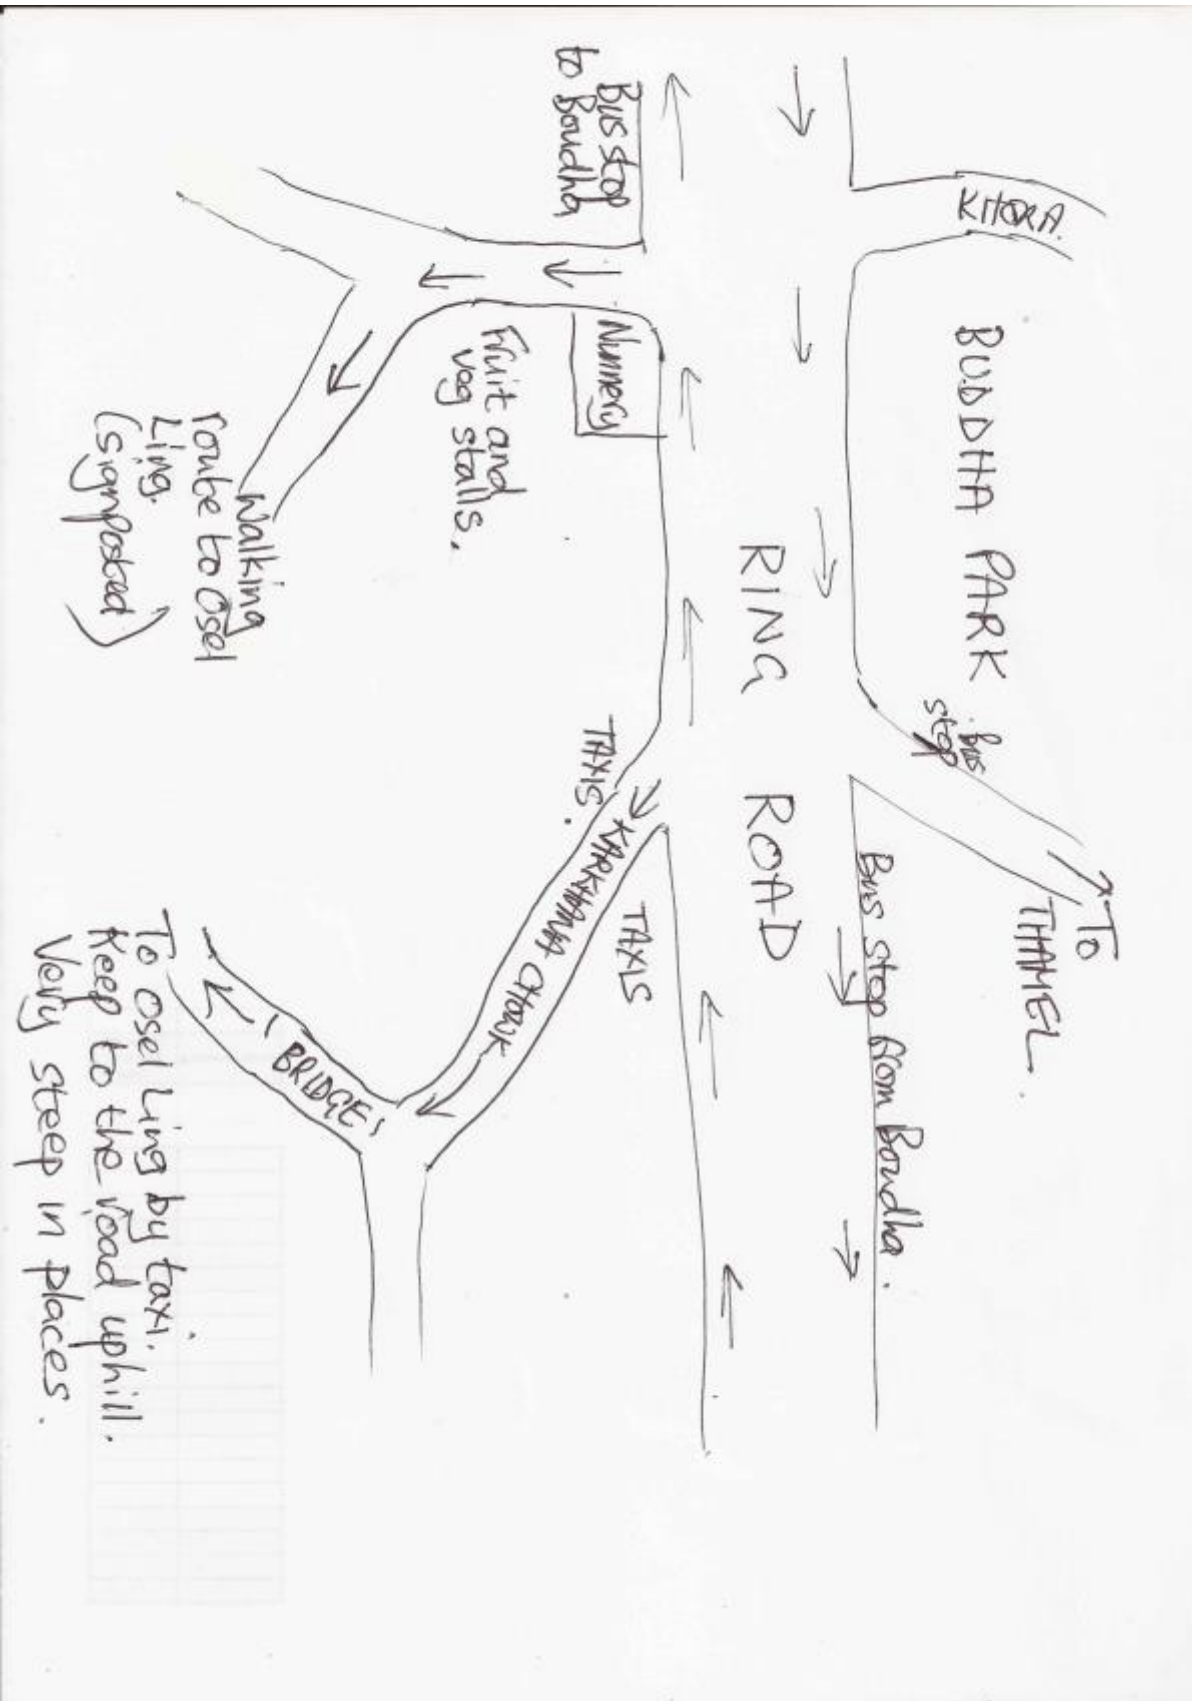 KITORA.
BUDDHA PARK
bus
stop
To
THAMEL.
Bus stop from Boudha.
RING ROAD
Bus stop
to Boudha
Nunnery
Fruit and
veg stalls.
TAXIS.
TAXIS
KARKHANA CHOWK
BRIDGE
Walking
route to Osel
Ling.
(signposted)
To Osel Ling by taxi.
Keep to the road uphill.
Very steep in places.